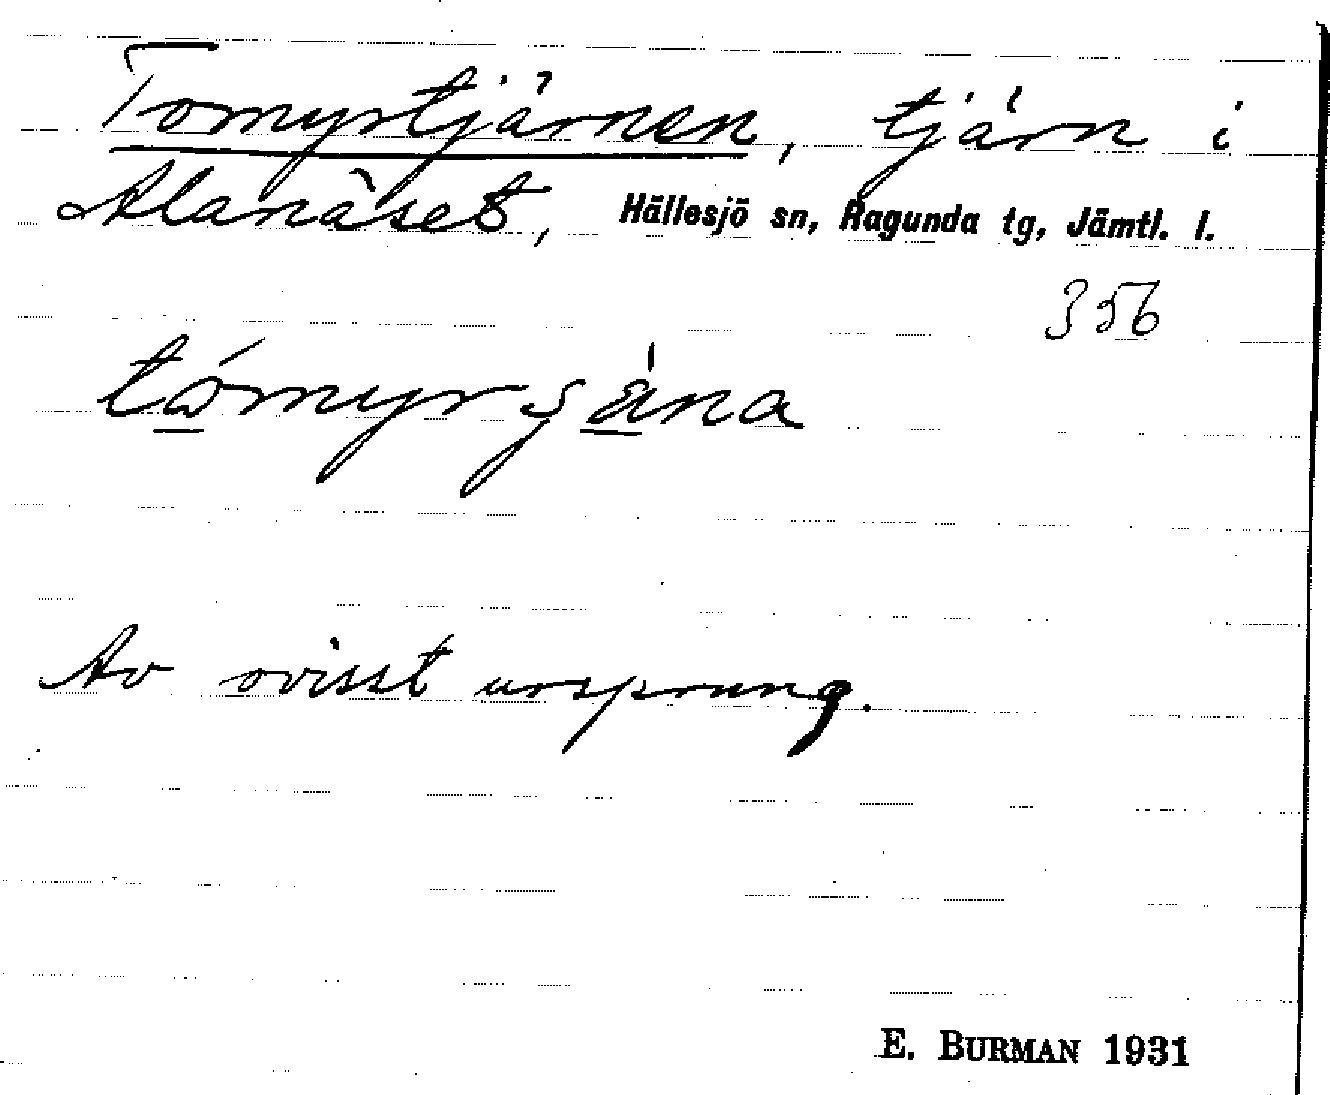 Tomyrtjärnen, tjärn i
Alanäset, Hällesjö sn, Ragunda tg, Jämtl. l.
356
Av ovisst ursprung.
E. BURMAN 1931